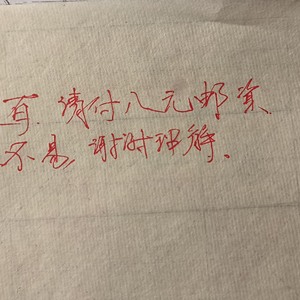 页. 请付八元邮资
不易, 谢谢理解.